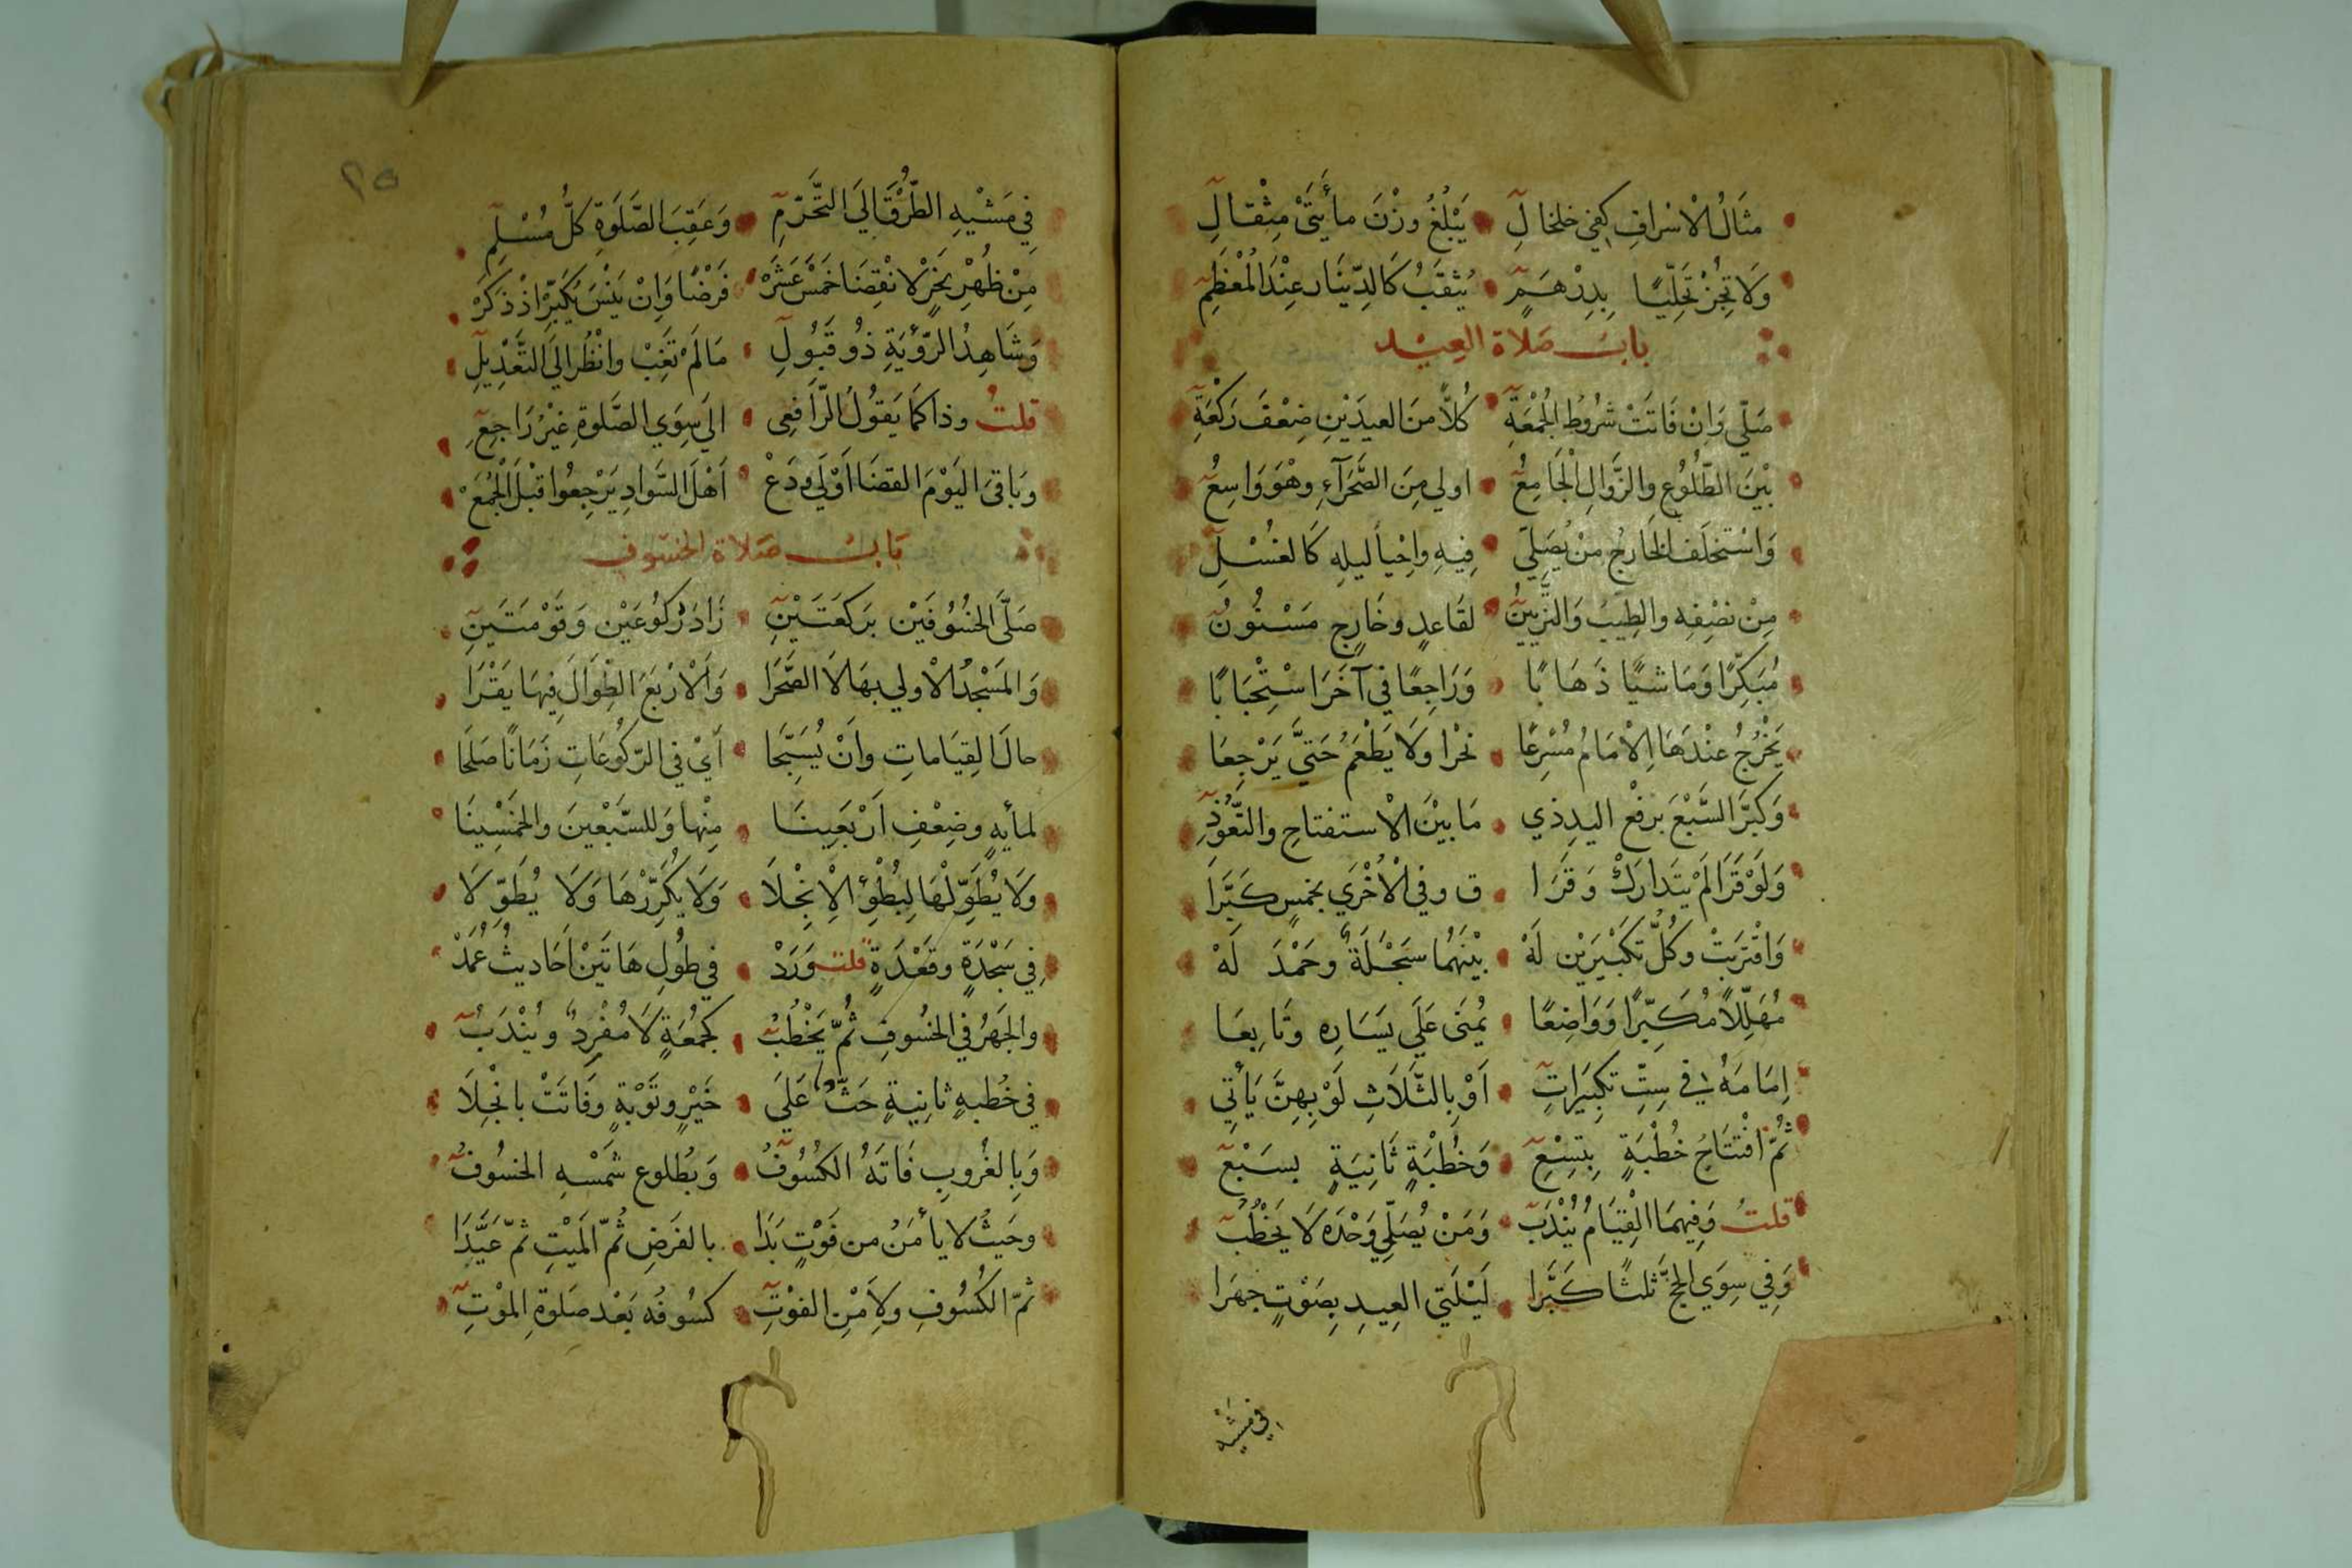 مثَالُ الْاسْرافِ كفي خلخالِ يَبْلُغُ وزْنَ مأيَتَيْ مِثْقالِ
وَلَا تُجِزْ تَحَلِّيًا بِدِرْهَمٍ يُثقَبُ كَالدِّينَار عِنْدَ الْمُعْظَمِ
بابُ صَلاة العِيْد
صَلّي وَانْ فَاتَتْ شرُوطُ الجُمْعَةِ كُلاًّ منَ العيدَيْنِ ضِعْفَ رَكْعَةِ
بَيْنَ الطّلُوُعِ وَالزَّوَالِ الْجَامِعُ اولي مِنَ الصَّحَرآءِ وهْوَ وَاسِعُ
وَاسْتخلَف الخَارجُ منْ يُصَلِّي فِيهِ واِحْياً ليلِهِ كَالغُسْلِ
مِنْ نصْفِهِ والطِيبُ وَالتَّزْيينُ لقَاعدٍ وخَارِجٍ مَسْنُونُ
مُبَكِّرًا وَمَاشيًا ذَهَابًا وَرَاجِعًا في آخَرَ اسْتِحْبَابًا
يَخْرُجُ عنْدَهَا اِلْامَامُ مُسْرِعًا نحْرا وَلَا يَطْعَمُ حَتيَّ يَرْجعَا
وَكبَّرَ السَّبْعَ برفْعِ اليدِ ذي مَا بيْنَ الْاستفتاحِ والتَّعَوُّذِ
وَلَوْ قَرَا لَمْ يَتَدارَكْ وَقَرَا ق وفي الْاُخْرَي بخمسٍ كَبَّرَا
وَاقْترَبَتْ وكُلُّ تكبيْرَيْن لَهْ بيْنَهُمَا سَجْحَلَةٌ وحَمْدَ لَهْ
مُهَلّلاً مُكَبِّرًا وَوَاضِعًا يُمنَى عَلَي يَسَارِه وتَابعَا
اِمَامَهُ في سِتِّ تكبِيَراتِ اَوْ بِالثَّلَاثِ لَوْ بِهِنَّ يَأتي
ثُمَّ افْتتَاحُ خُطْبَةٍ بِتِسْعِ وَخُطْبَةٍ ثَانِيَةٍ بسَبْعِ
قلتُ وَفِيهمَا القِيَامُ يُنْدَبُ وَمَنْ يُصَلّي وَحْدَه لَا يَخْطُبُ
وَفِي سِوَي الحجّ ثلثًا كَبَّرا لَيْلَتيِ العِيدِ بِصَوْتٍ جهَرا
في مَشْيه
٢٥
فِي مَشْيِهِ الطُّرْقَ الَي التَّحَرّمِ وَعَقِبَ الصَّلَوةِ كلُّ مُسْلِمِ
مِنْ ظُهْرِ نَحْرٍ لانْقِضَا خَمْسَ عَشَرْ فَرْضًا وَانْ يَنْسَ يكَبِّرْ اذْ ذَكَرْ
وَشَاهِدُ الرّؤيَةِ ذُو قَبُولِ مَا لَمْ تَغِبْ وانْظُر الَي التَّعْدِيلِ
قلتُ وذا كمَا يَقولُ الرّافِعِى الَي سِوَي الصَّلوةِ غيْرُ رَاجعِ
وبَاقيَ اليَوْمَ القضَا اَوْلَي وَدَعْ اَهْلَ السَّوادِ يَرْجِعُوا قبْلَ الْجُمَعْ
بَابُ صَلاة الخسَوف
صَلَّي الخسُوفَيْن برَكعَتَيْنِ زَادَ رُكوُعَيْنِ وَقَوْمَتَينِ
وَالمَسْجدُ الْاولي بهَا لَا الصَّحْرَا وَالْاَرْبَعَ الطّوَالَ فِيهَا يَقْرَا
حالَ القِيَاماتِ وانْ يُسَبِّحَا اَيْ في الرّكوُعَاتِ زَمَانًا صَلَحَا
لمأيهٍ وضِعْفِ اَرْبَعِينَا مِنْها وَللسَّبْعينَ والخَمْسِينَا
وَلَا يُطَوِّلْهَا لِبُطْؤِ الْاِنْجِلَا وَلَا يُكَرِّرْهَا وَلَا يُطَوِّلَا
في سَجْدَةٍ وقَعْدَةٍ قلت وَرَدْ في طُولِ هَاتَيْنِ اَحَاديثُ عُمَدْ
والجَهْرُ في الخسُوفِ ثُمّ يَخْطُبُ كجُمْعَةٍ لَا مُفْرِدٌ ويُنْدَبُ
في خُطبهٍ ثانِيةٍ حَثٌّ عَلَي خَيْرٍ وتَوْبةٍ وفَاتَتْ بانْجِلَا
وَبِالغُروبِ فَاتَهُ الكسُوُفُ وَبُطلوع شمْسهِ الخسُوفُ
وحَيثُ لا يأمَنُ من فَوْتٍ بَدَا بالفَرضِ ثُمَّ المَيْتِ ثمّ عَيَّدَا
ثمّ الكُسُوفِ ولاَمْنِ الفوْتِ كسُوفُه بَعْد صَلوةِ الموْتِ